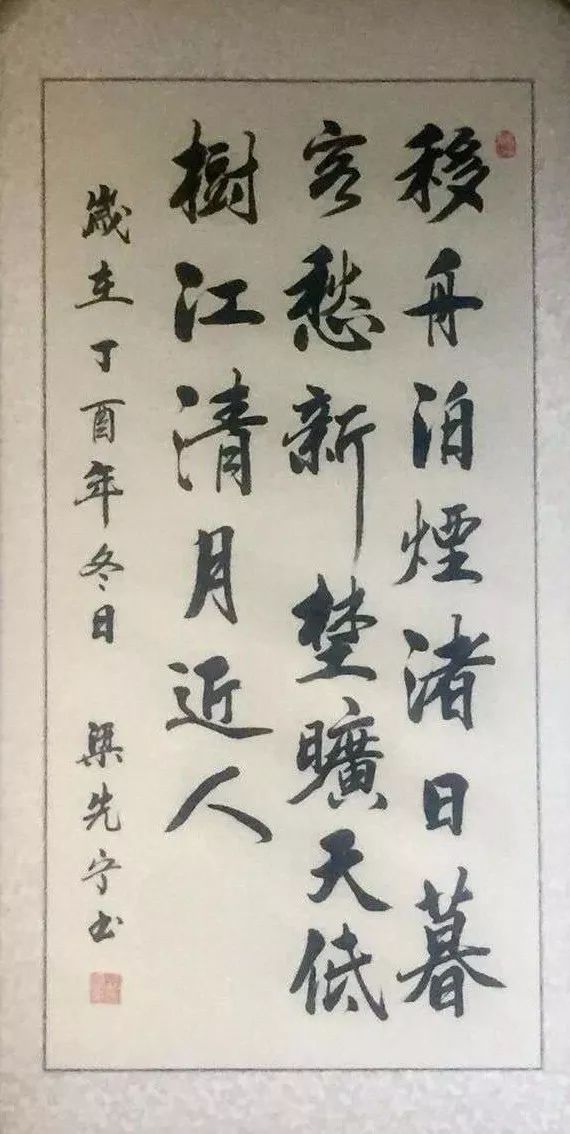 移舟泊煙渚日暮
客愁新埜曠天低
樹江清月近人
歲在丁酉年冬日 梁先寧书